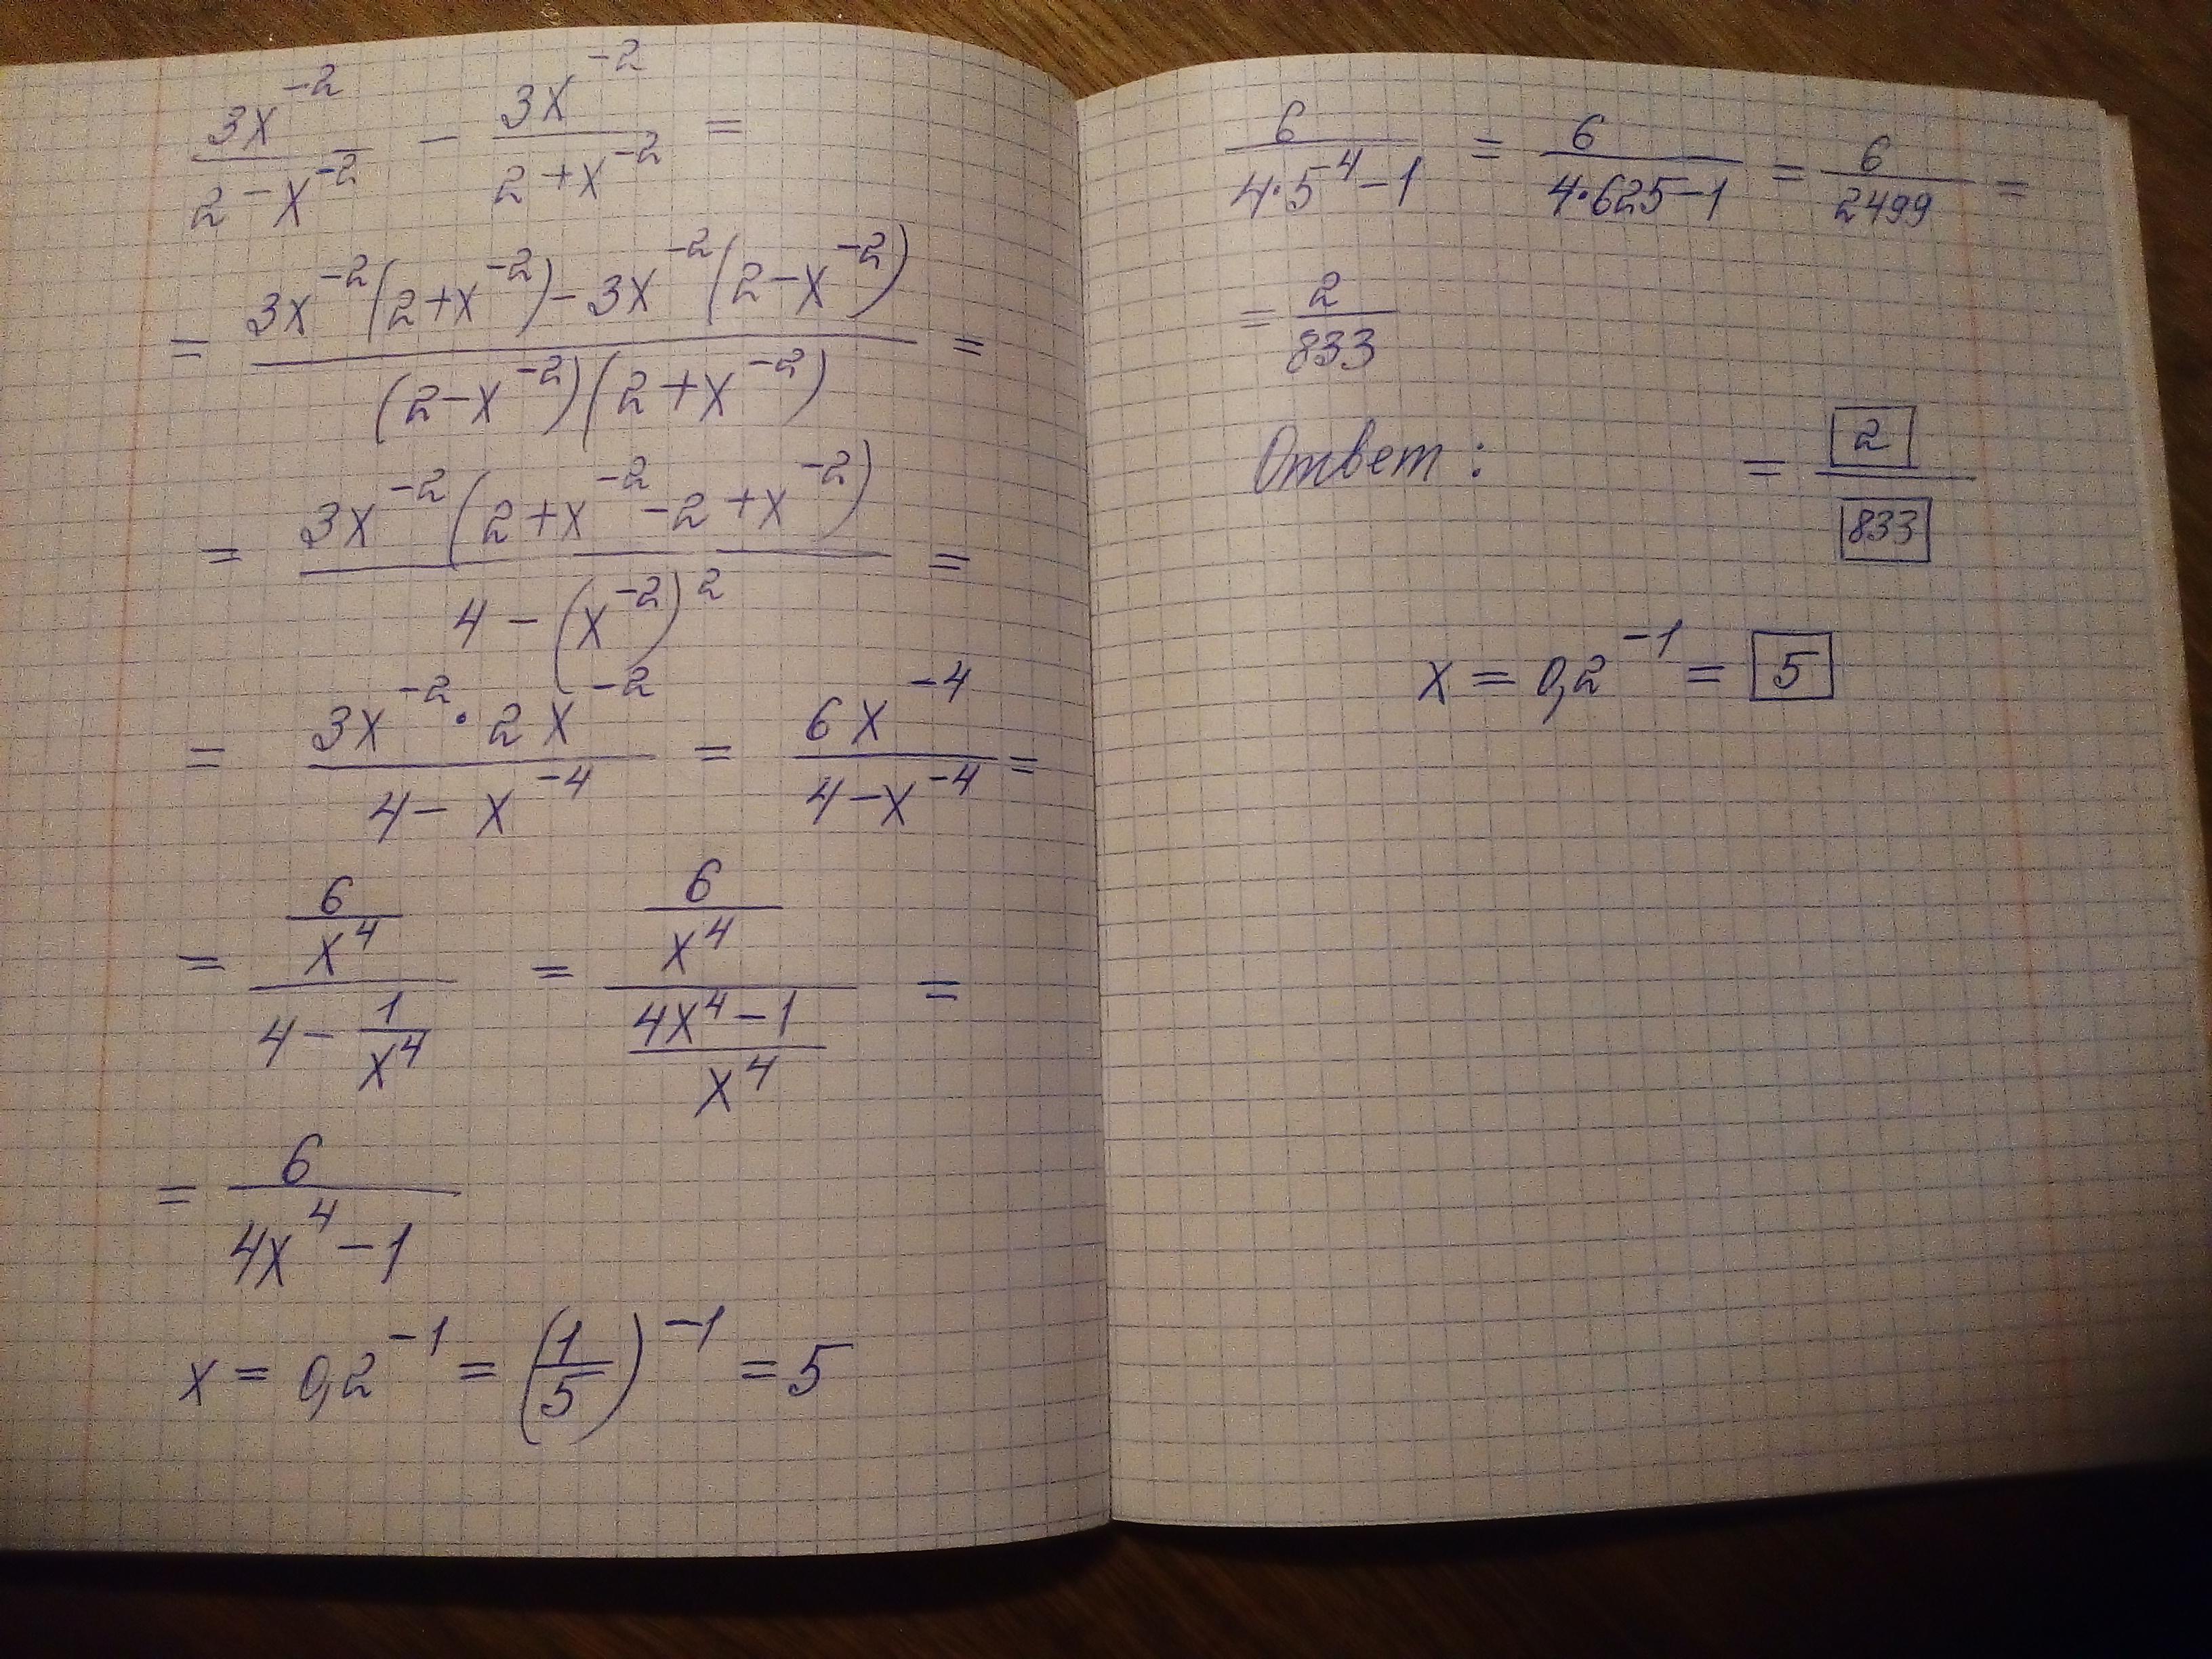 3x^-2 / (2-x^-2) - 3x^-2 / (2+x^-2) =
= (3x^-2(2+x^-2) - 3x^-2(2-x^-2)) / ((2-x^-2)(2+x^-2)) =
= 3x^-2(2+x^-2-2+x^-2) / (4-(x^-2)^2) =
= (3x^-2 · 2x^-2) / (4-x^-4) = 6x^-4 / (4-x^-4) =
= (6/x^4) / (4 - 1/x^4) = (6/x^4) / ((4x^4-1)/x^4) =
= 6 / (4x^4-1)
x = 0,2^-1 = (1/5)^-1 = 5
6 / (4·5^4-1) = 6 / (4·625-1) = 6/2499 =
= 2/833
Ответ: = 2/833
x = 0,2^-1 = 5